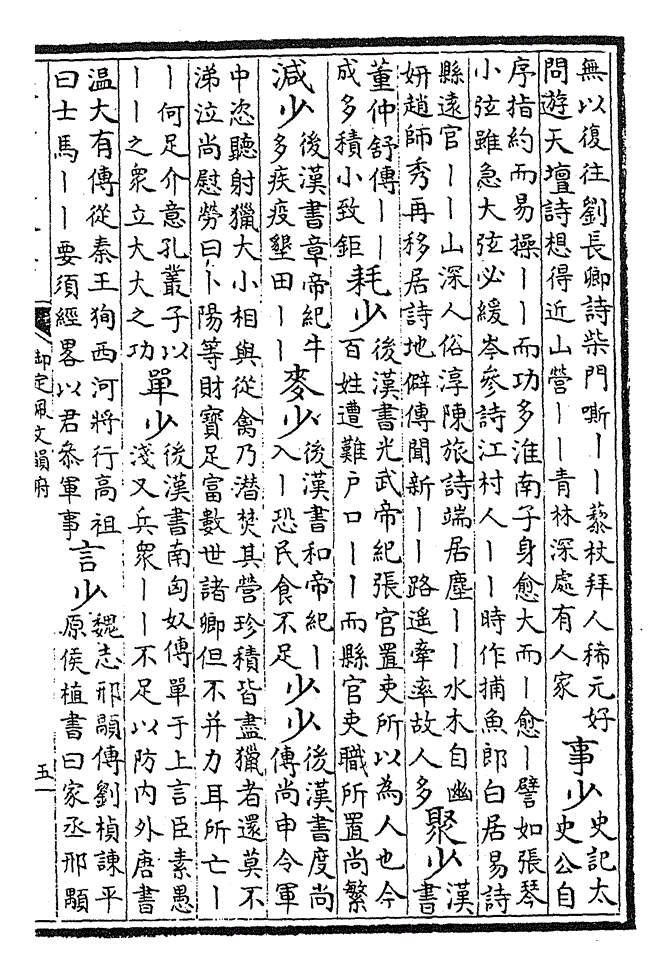 無以復往劉長卿詩柴門嘶丨丨藜杖拜人稀元好
問遊天壇詩想得近山營丨丨青林深處有人家
事少
史記太
史公自
序指約而易操丨丨而功多淮南子身愈大而丨愈丨譬如張琴
小弦雖急大弦必緩岑參詩江村人丨丨時作捕魚郎白居易詩
縣遠官丨丨山深人俗淳陳旅詩端居塵丨丨水木自幽
妍趙師秀再移居詩地僻傳聞新丨丨路遥牽率故人多
聚少
漢
書
董仲舒傳丨丨
成多積小致鉅
耗少
後漢書光武帝紀張官置吏所以為人也今
百姓遭難户口丨丨而縣官吏職所置尚繁
減少
後漢書章帝紀牛
多疾疫墾田丨丨
麥少
後漢書和帝紀丨
入丨恐民食不足
少少
後漢書度尚
傳尚申令軍
中恣聽射獵大小相與從禽乃潛焚其營珍積皆盡獵者還莫不
涕泣尚慰勞曰卜陽等財寶足富數世諸卿但不并力耳所亡丨
丨何足介意孔叢子以
丨丨之衆立大大之功
單少
後漢書南匈奴傳單于上言臣素愚
淺又兵衆丨丨不足以防内外唐書
温大有傳從秦王狥西河將行高祖
曰士馬丨丨要須經畧以君叅軍事
言少
魏志邢顒傳劉楨諫平
原侯植書曰家丞邢顒
御定佩文韻府
五一